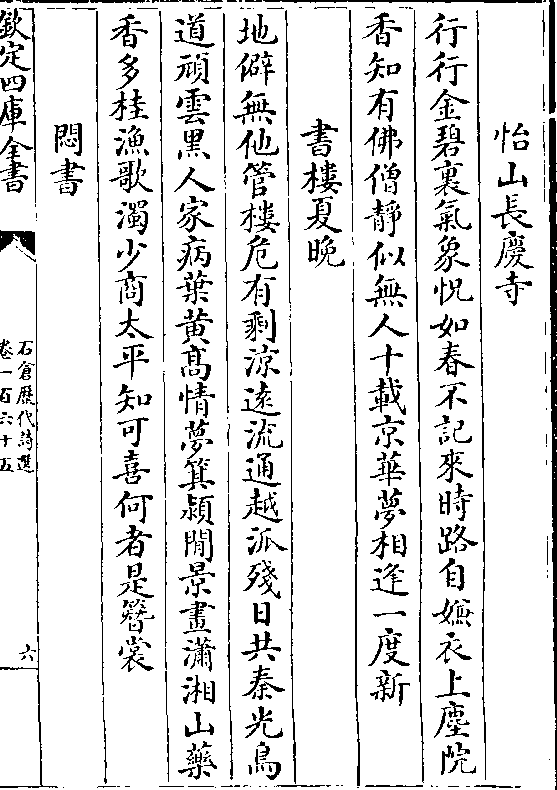 怡山長慶寺
行行金碧裏氣象怳如春不記來時路自嫌衣上塵院
香知有佛僧靜似無人十載京華夢相逢一度新
書樓夏晚
地僻無他管樓危有剩涼遠流通越派殘日共秦光鳥
道頑雲黑人家病葉黃高情夢箕潁閒景畫瀟湘山藥
香多桂漁歌濁少商太平知可喜何者是簪裳
悶書
欽定四庫全書
石倉歷代詩選
卷一百六十五
六